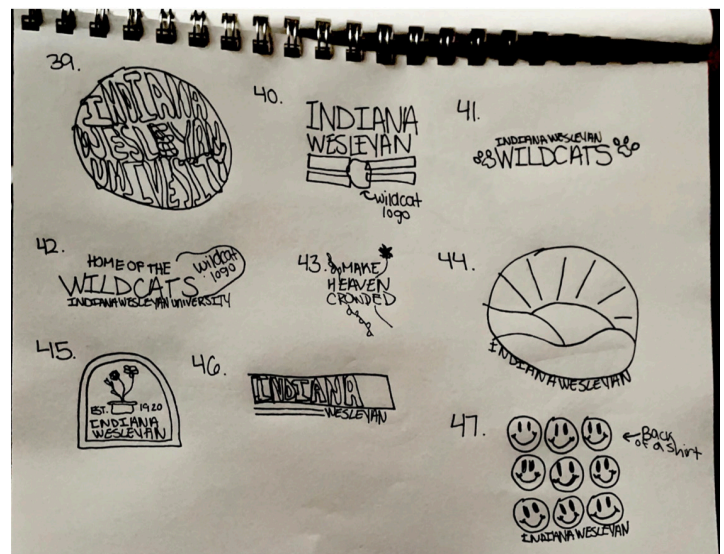 39.
INDIANA
WESLEYAN
UNIVESITY
40.
INDIANA
WESLEYAN
wildcat
logo
41.
INDIANA WESLEYAN
WILDCATS
42.
HOME OF THE
WILDCATS
wildcat
logo
INDIANA WESLEYAN UNIVERSITY
43.
MAKE
HEAVEN
CRONDED
44.
INDIANA WESLEYAN
45.
EST. 1920
INDIANA
WESLEYAN
46.
INDIANA
WESLEYAN
47.
Back
of a shirt
INDIANA WESLEYAN